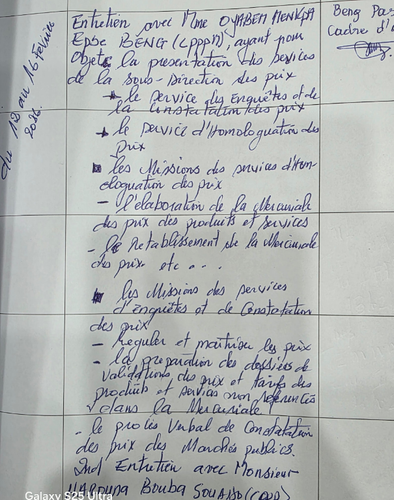 du 12 au 16 février
2026.
Entretien avec Mme OYABEN MENKPA
Epse BENG (CPPPN), ayant pour
Objet : la présentation des services
de la sous-Direction des prix
le Service des Enquêtes et de
la Constatation des prix
le Service d'Homologuation des
prix
les Missions des services d'Hom-
ologuation des prix
- l'élaboration de la Mercuriale
des prix des produits et services
- le Rétablissement de la Mercuriale
des prix etc...
les Missions des services
d'enquêtes et de Constatation
des prix
- Réguler et maîtriser les prix
- la préparation des dossiers de
validations des prix et tarifs des
produits et services non référencés
dans la Mercuriale
- le procès Verbal de Constatation
des prix des Marchés publics.
2nd Entretien avec Monsieur
HAROUNA Bouba
Beng
Cadre d'
Galaxy S25 Ultra